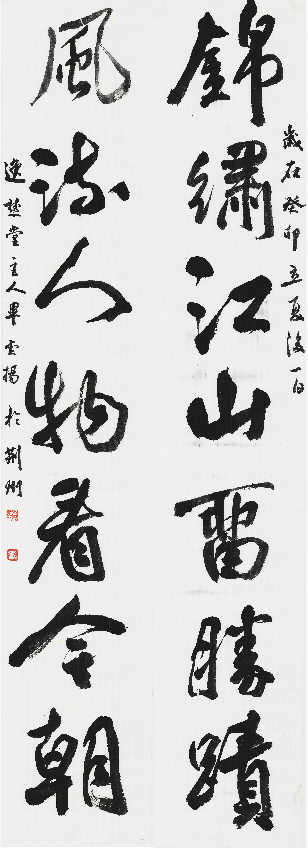 歲在癸卯立夏後一日
錦繡江山畱勝蹟
風流人物看今朝
堂主人畢云揚於荆州